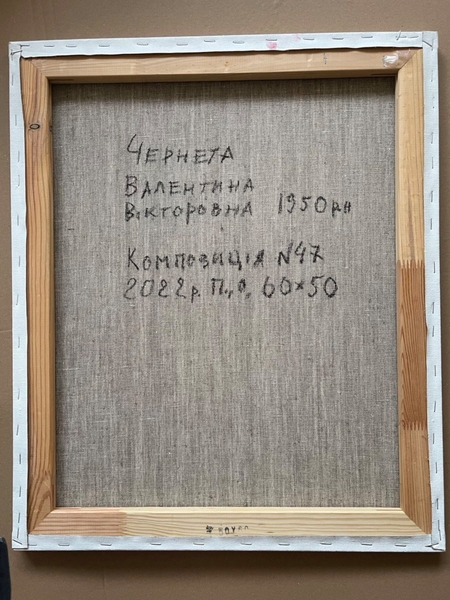 ЧЕРНЕТА
ВАЛЕНТИНА
ВІКТОРОВНА 1950 рн
КОМПОЗИЦІЯ №47
2022р. П.,о. 60×50